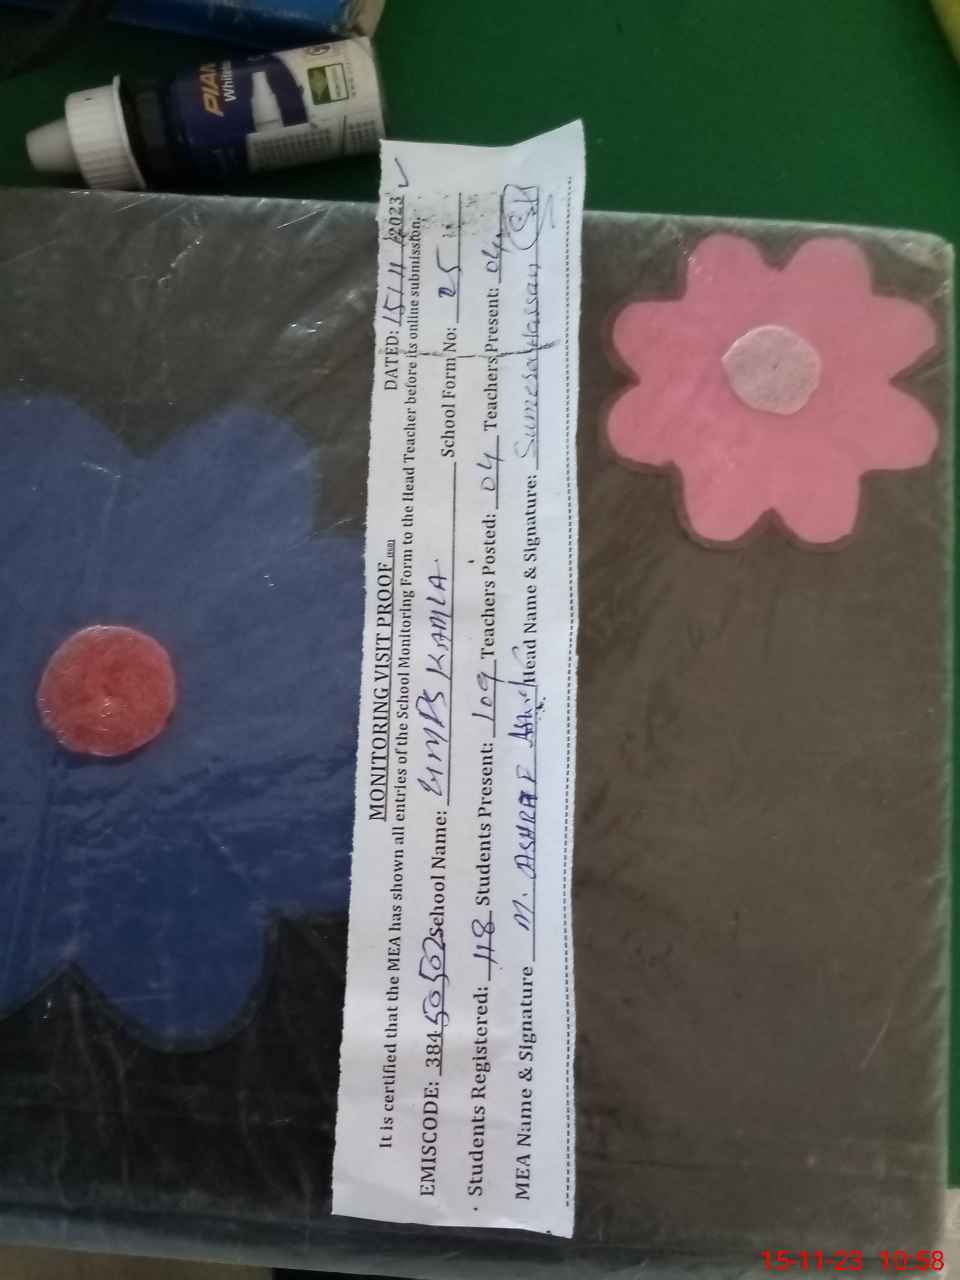 PIAN
White
MONITORING VISIT PROOF
DATED: 15/11/2023
It is certified that the MEA has shown all entries of the School Monitoring Form to the Head Teacher before its online submission.
EMISCODE: 38450502 School Name: GMPS KAMLA School Form No: 25
Students Registered: 118 Students Present: 109 Teachers Posted: 04 Teachers Present: 04
MEA Name & Signature M. ASHRAF Head Name & Signature: Sumera Hassan
15-11-23 10:58